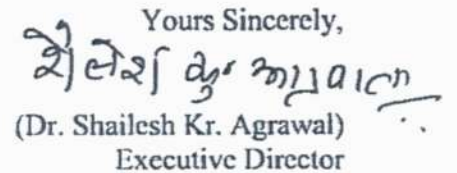 Yours Sincerely,
शैलेश कु॰ अग्रवाल
(Dr. Shailesh Kr. Agrawal)
Executive Director